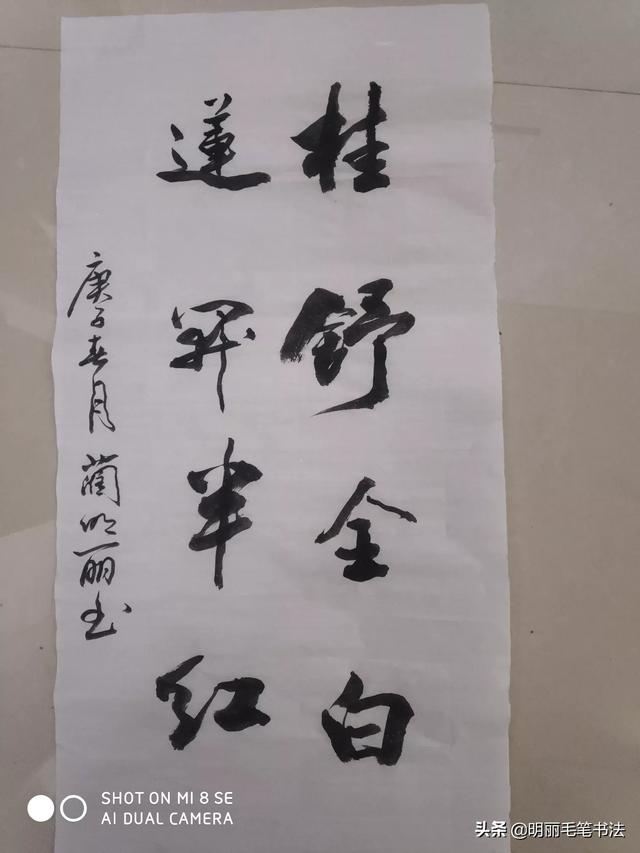 桂舒全白
蓮開半红
庚子春月蔺明丽书
SHOT ON MI 8 SE
AI DUAL CAMERA
头条 @明丽毛笔书法